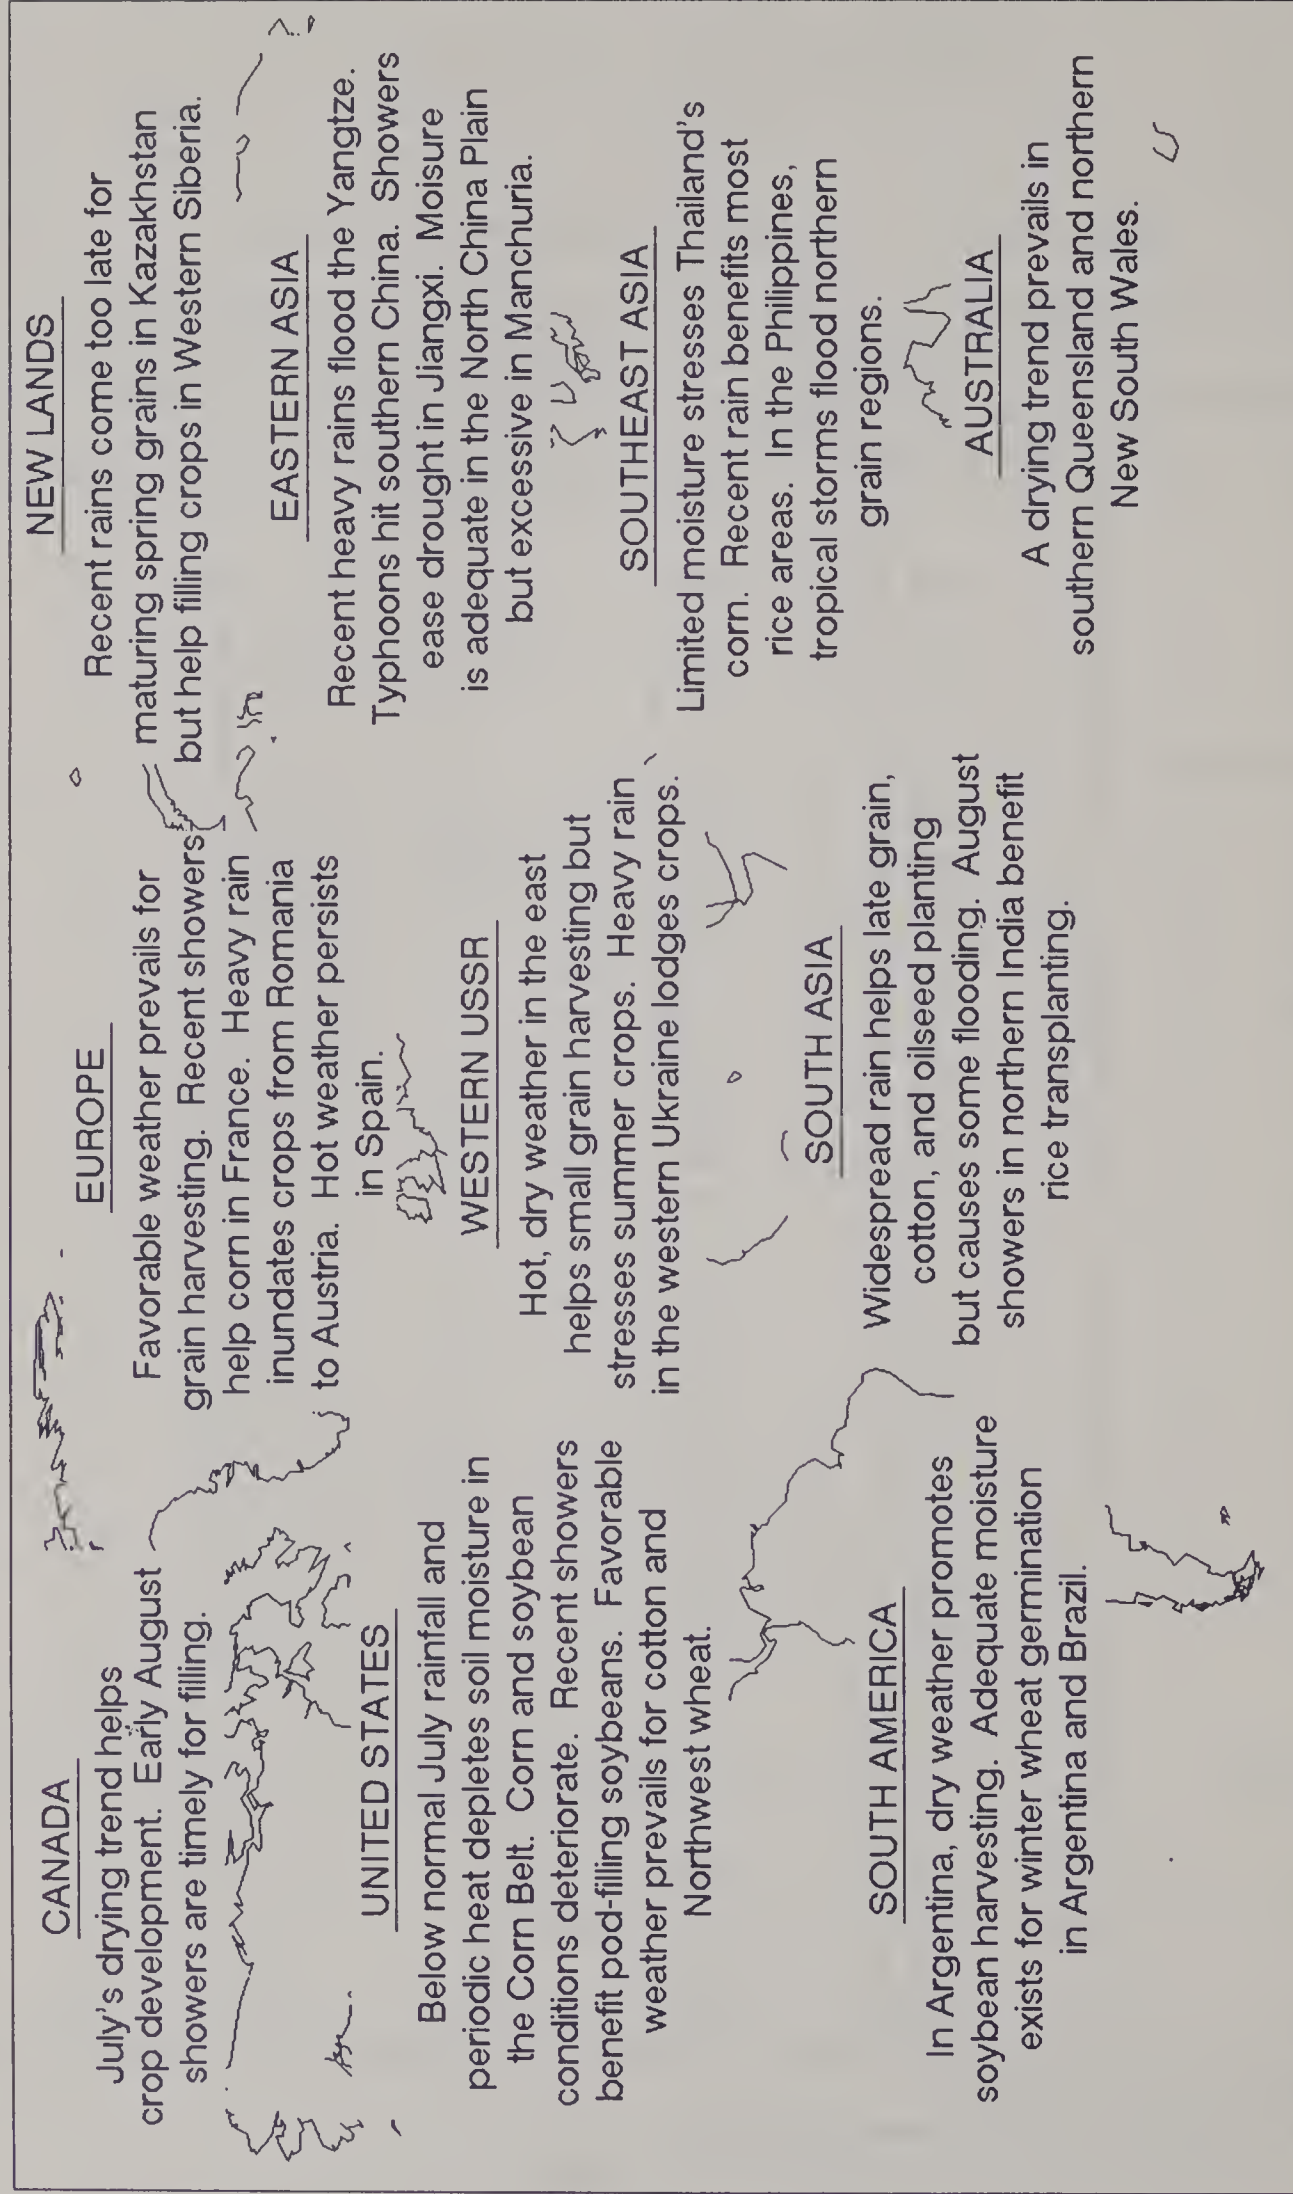 CANADA
July's drying trend helps
crop development. Early August
showers are timely for filling.
UNITED STATES
Below normal July rainfall and
periodic heat depletes soil moisture in
the Corn Belt. Corn and soybean
conditions deteriorate. Recent showers
benefit pod-filling soybeans. Favorable
weather prevails for cotton and
Northwest wheat.
SOUTH AMERICA
In Argentina, dry weather promotes
soybean harvesting. Adequate moisture
exists for winter wheat germination
in Argentina and Brazil.
EUROPE
Favorable weather prevails for
grain harvesting. Recent showers
help corn in France. Heavy rain
inundates crops from Romania
to Austria. Hot weather persists
in Spain.
WESTERN USSR
Hot, dry weather in the east
helps small grain harvesting but
stresses summer crops. Heavy rain
in the western Ukraine lodges crops.
SOUTH ASIA
Widespread rain helps late grain,
cotton, and oilseed planting
but causes some flooding. August
showers in northern India benefit
rice transplanting.
NEW LANDS
Recent rains come too late for
maturing spring grains in Kazakhstan
but help filling crops in Western Siberia.
EASTERN ASIA
Recent heavy rains flood the Yangtze.
Typhoons hit southern China. Showers
ease drought in Jiangxi. Moisure
is adequate in the North China Plain
but excessive in Manchuria.
SOUTHEAST ASIA
Limited moisture stresses Thailand's
corn. Recent rain benefits most
rice areas. In the Philippines,
tropical storms flood northern
grain regions.
AUSTRALIA
A drying trend prevails in
southern Queensland and northern
New South Wales.